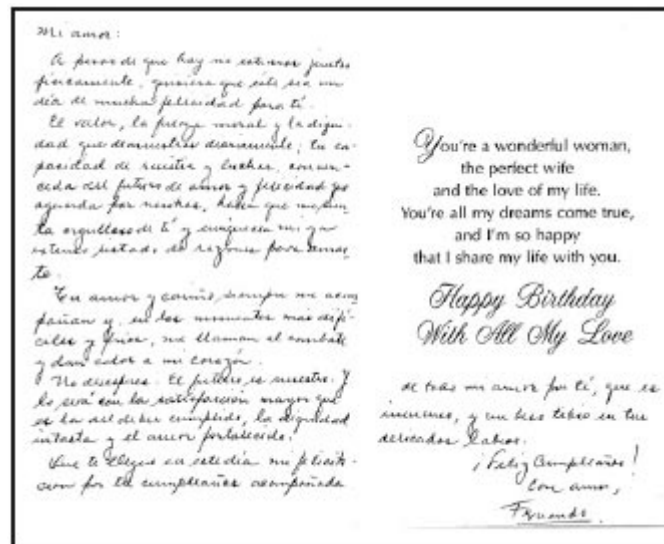 Mi amor:
A pesar de que hoy no estemos juntos
físicamente, quisiera que éste sea un
día de mucha felicidad para tí.
El valor, la fuerza moral y la digni-
dad que demuestras diariamente; tu ca-
pacidad de resistir y luchar, conven-
cida del futuro de amor y felicidad que
aguarda por nosotros, hacen que me sien-
ta orgulloso de tí y enriquecen mi ya
extenso listado de razones para amar-
te.
Tu amor y cariño siempre me acom-
pañan y, en los momentos más difí-
ciles y fríos, me llaman al combate
y dan calor a mi corazón.
No desesperes. El futuro es nuestro. Y
lo será con la satisfacción mayor que
es la del deber cumplido, la dignidad
intacta y el amor fortalecido.
Que te llegue en este día mi felicita-
ción por tu cumpleaños acompañada
You're a wonderful woman,
the perfect wife
and the love of my life.
You're all my dreams come true,
and I'm so happy
that I share my life with you.
Happy Birthday
With All My Love
de todo mi amor por tí, que es
inmenso, y un beso tibio en tus
delicados labios.
¡Feliz Cumpleaños!
Con amor,
Fernando.